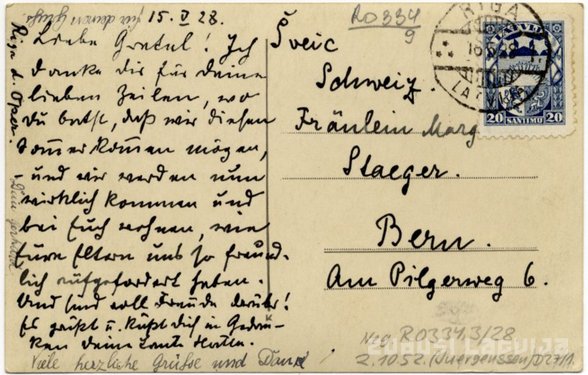 15. V 28.
Liebe Gretul! Ich
danke dir für deine
lieben Zeilen, wo
du batst, daß wir diesen
Sommer kommen mögen,
und wir werden nun
wirklich kommen und
bei Euch wohnen, wie
Eure Eltern uns so freund-
lich aufgefordert haben.
Und sind voll Freude darüber!
Es grüßt u. küßt dich in Gedan-
ken deine Tante
Viele herzliche Grüsse und Dank!
Riga d. Oper.
R0334
9
Šveic
Schweiz.
Fräulein Marg
Staeger.
Bern.
Am Pilgerweg 6.
RIGA
LATVIJA
20 SANTIMU 20
Neg. R0334 3/28
2.1052 (Juergenssen) D27/1
ZUDUSI LATVIJA